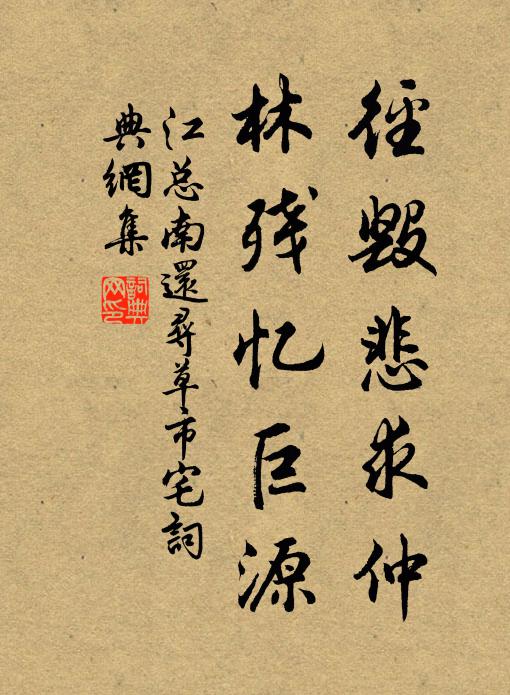 徑毁悲求仲
林残忆巨源
江总南還尋草市宅詞
典網集
詞典网印